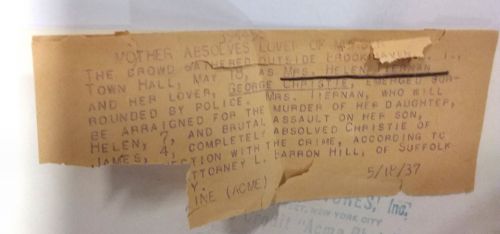 MOTHER ABSOLVES LOVER OF
THE CROWD GATHERED OUTSIDE BROOKHAVEN, L. I.,
TOWN HALL, MAY 18, AS MRS. HELEN TIERNAN
AND HER LOVER, GEORGE CHRISTIE, EMERGED SUR-
ROUNDED BY POLICE. MRS. TIERNAN, WHO WILL
BE ARRAIGNED FOR THE MURDER OF HER DAUGHTER,
HELEN, 7, AND BRUTAL ASSAULT ON HER SON,
JAMES, 4, COMPLETELY ABSOLVED CHRISTIE OF
ECTION WITH THE CRIME, ACCORDING TO
TTORNEY L. BARRON HILL, OF SUFFOLK
Y.
INE (ACME) 5/18/37
Inc.
NEW YORK CITY
Credit "Acme